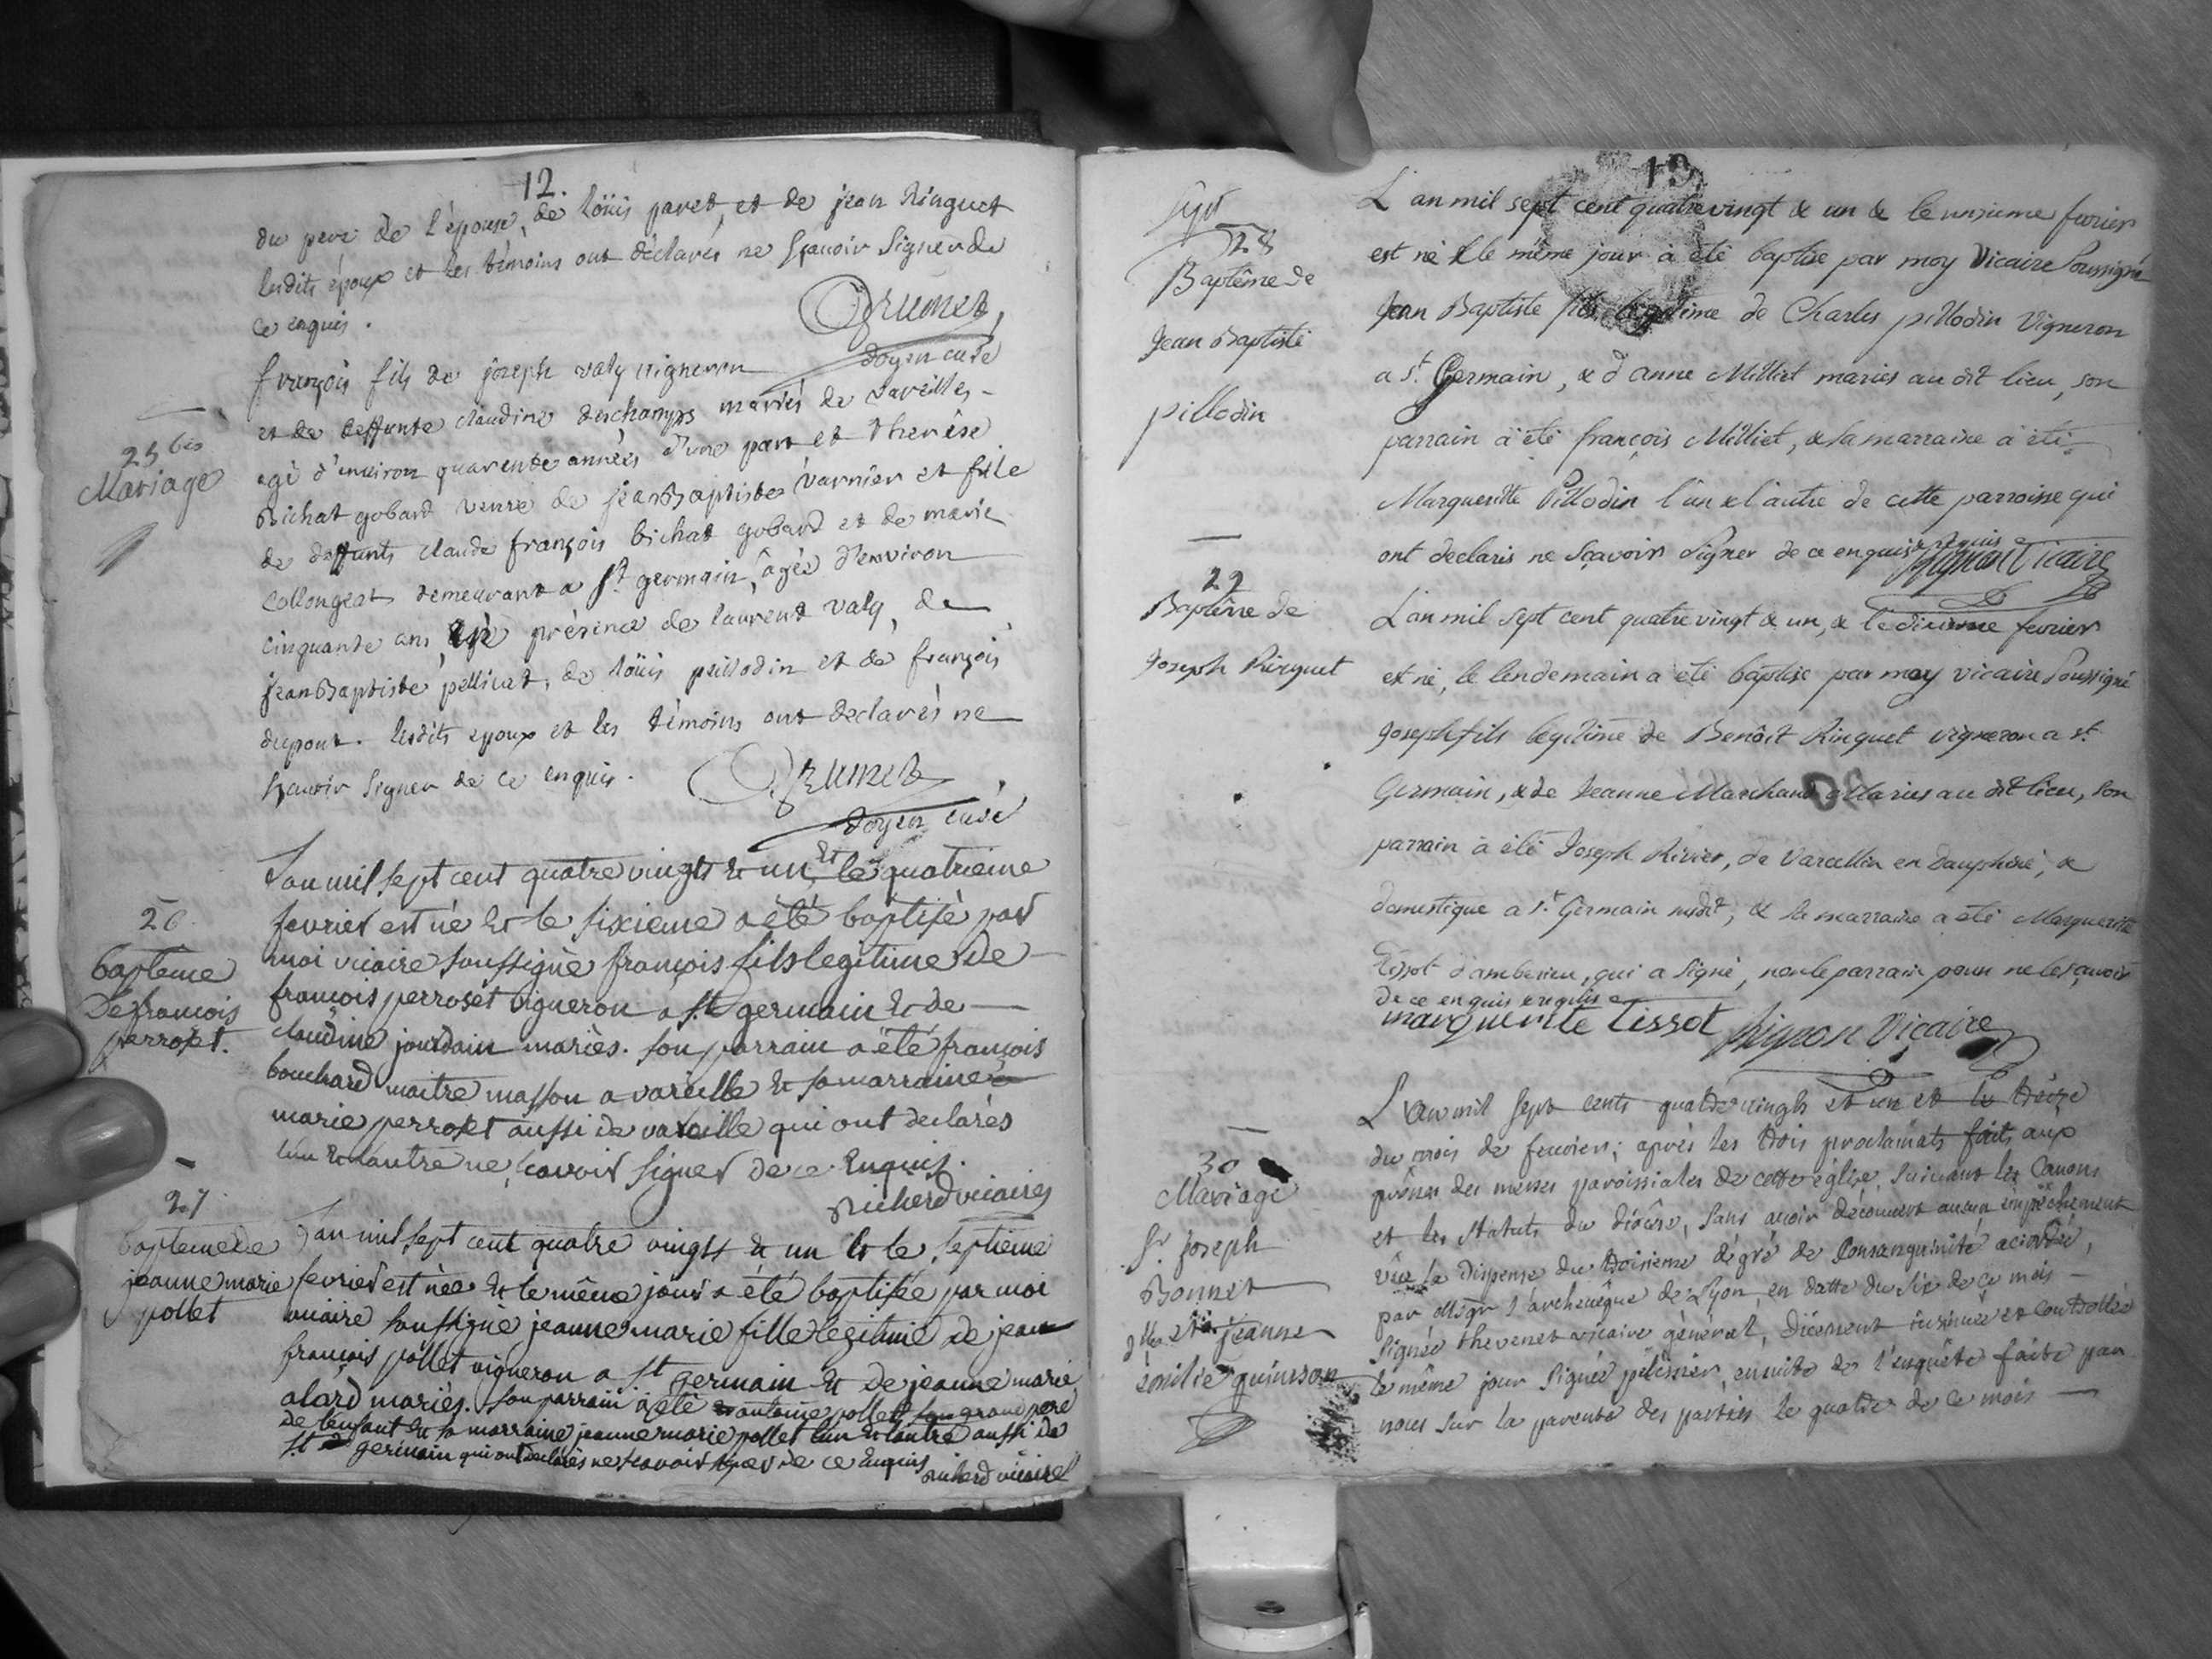 12.
du pere de l'épouse, de loüis paret, et de jean Ringuet
lesdits époux et les témoins ont déclarés ne sçavoir signer de
ce enquis.
Grumet,
doyen curé
25 bis
Mariage
françois fils de joseph valy vigneron
et de deffunte claudine deschamps mariés de vareilles -
agé d'environ quarente années d'une part et therèse
Bichat gobard veuve de jean Baptiste varnier et fille
de deffunts claude françois bichat gobard et de marie
Collongeat demeurant a St germain, âgée d'environ
cinquante ans, en présence de laurent valy, de
jean Baptiste pellicat, de loüis pillodin et de françois
dupont. lesdits epoux et les témoins ont declarés ne
sçavoir signer de ce enquis.
Grumet
doyen curé
26
bapteme
de francois
perroset.
L'an mil sept cent quatre vingts et un et le quatrieme
fevrier est né et le sixieme a été baptisé par
moi vicaire soussigné françois fils legitime de
francois perroset vigneron a st germain et de
claudine jourdain mariés. son parrain a été françois
bouchard maitre masson a vareille et sa marraine
marie perroset aussi de vareille qui ont declarés
l'un et l'autre ne scavoir signer de ce enquis.
Richerd vicaire
27
bapteme de
jeanne marie
pollet
L'an mil sept cent quatre vingts et un et le septieme
fevrier est née et le même jour a été baptisée par moi
vicaire soussigné jeanne marie fille legitime de jean
françois pollet vigneron a st germain et de jeanne marie
alard mariés. son parrain a été antoine pollet son grand pere
de l'enfant et sa marraine jeanne marie pollet l'un et l'autre aussi de
st germain qui ont declarés ne scavoir signer de ce enquis
Richerd vicaire
19
28
Baptême de
Jean Baptiste
pillodin
L'an mil sept cent quatre vingt & un & le onzieme fevrier
est né & le même jour à été baptise par moy Vicaire soussigné
Jean Baptiste fils legitime de Charles pillodin Vigneron
a st. Germain, & d'anne Milliet mariés au dit lieu, son
parrain à été françois Milliet, & la marraine à été
Margueritte Pillodin l'un & l'autre de cette parroisse qui
ont declarés ne sçavoir signer de ce enquis & requis
Vicaire
29
Baptême de
Joseph Ringuet
L'an mil sept cent quatre vingt & un, & le dixieme fevrier
est né, le lendemain a été baptise par moy vicaire soussigné
Joseph fils legitime de Benoît Ringuet vigneron a st.
Germain, & de Jeanne Marchand Mariés au dit lieu, son
parrain à été Joseph Rivier, de Varcellin en dauphiné, &
domestique a st. Germain susdit, & la marraine a été Marguerite
Tissot d'amberieu, qui a signé, non le parrain pour ne le sçavoir
de ce enquis & requis
marguerite tissot
Vicaire
30
Mariage
Sr joseph
Bonnet
et jeanne
émilie quinson
L'an mil sept cents quatre vingts et un et le treize
du mois de fevrier; après les trois proclamats faits aux
prônes des messes paroissiales de cette église, suivant les Canons
et les statuts du diocèse, sans avoir découvert aucun empéchement
vûe la dispense du troisieme dégré de Consanguinité accordée,
par Msgr l'archevêque de Lyon, en datte du six de ce mois -
signée thevenet vicaire général, düement insinuée et controllée
le même jour signée pelissier, ensuite de l'enquête faite par
nous sur la parenté des parties le quatre de ce mois